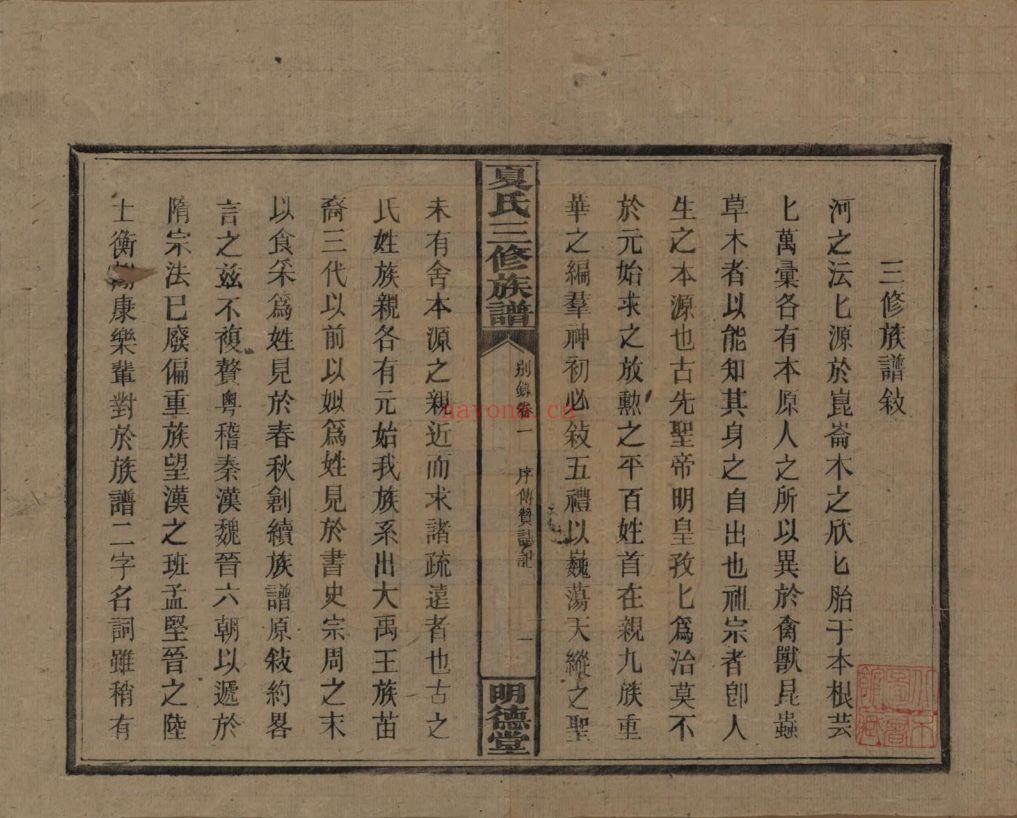 三修族譜敍
河之沄匕源於崑崙木之欣匕胎于本根芸
匕萬彙各有本原人之所以異於禽獸昆蟲
草木者以能知其身之自出也祖宗者卽人
生之本源也古先聖帝明皇孜匕爲治莫不
於元始求之放勳之平百姓首在親九族重
華之編羣神初必敍五禮以巍蕩天縱之聖
夏氏三修族譜
別錄卷一
序傳贊誌記
一
明德堂
未有舍本源之親近而求諸疏遠者也古之
氏姓族親各有元始我族系出大禹王族苗
裔三代以前以姒爲姓見於書史宗周之末
以食采爲姓見於春秋創續族譜原敍約畧
言之兹不複贅粵稽秦漢魏晉六朝以遞於
隋宗法已廢偏重族望漢之班孟堅晉之陸
士衡康樂輩對於族譜二字名詞雖稍有
nayona.cn